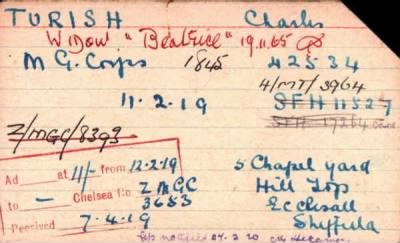 TURISH Charles
Widow "Beatrice" 19.11.65
M G. Corps 1845 42534
4/MT/3964
11.2.19 SFH 11527
Z/MGC/8393
Ad at 11/- from 12-2-19 5 Chapel yard
to — Chelsea No Z MGC 3653 Hill Top
Ecclesall
Received 7-4-19 Sheffield
notified 24.2.20